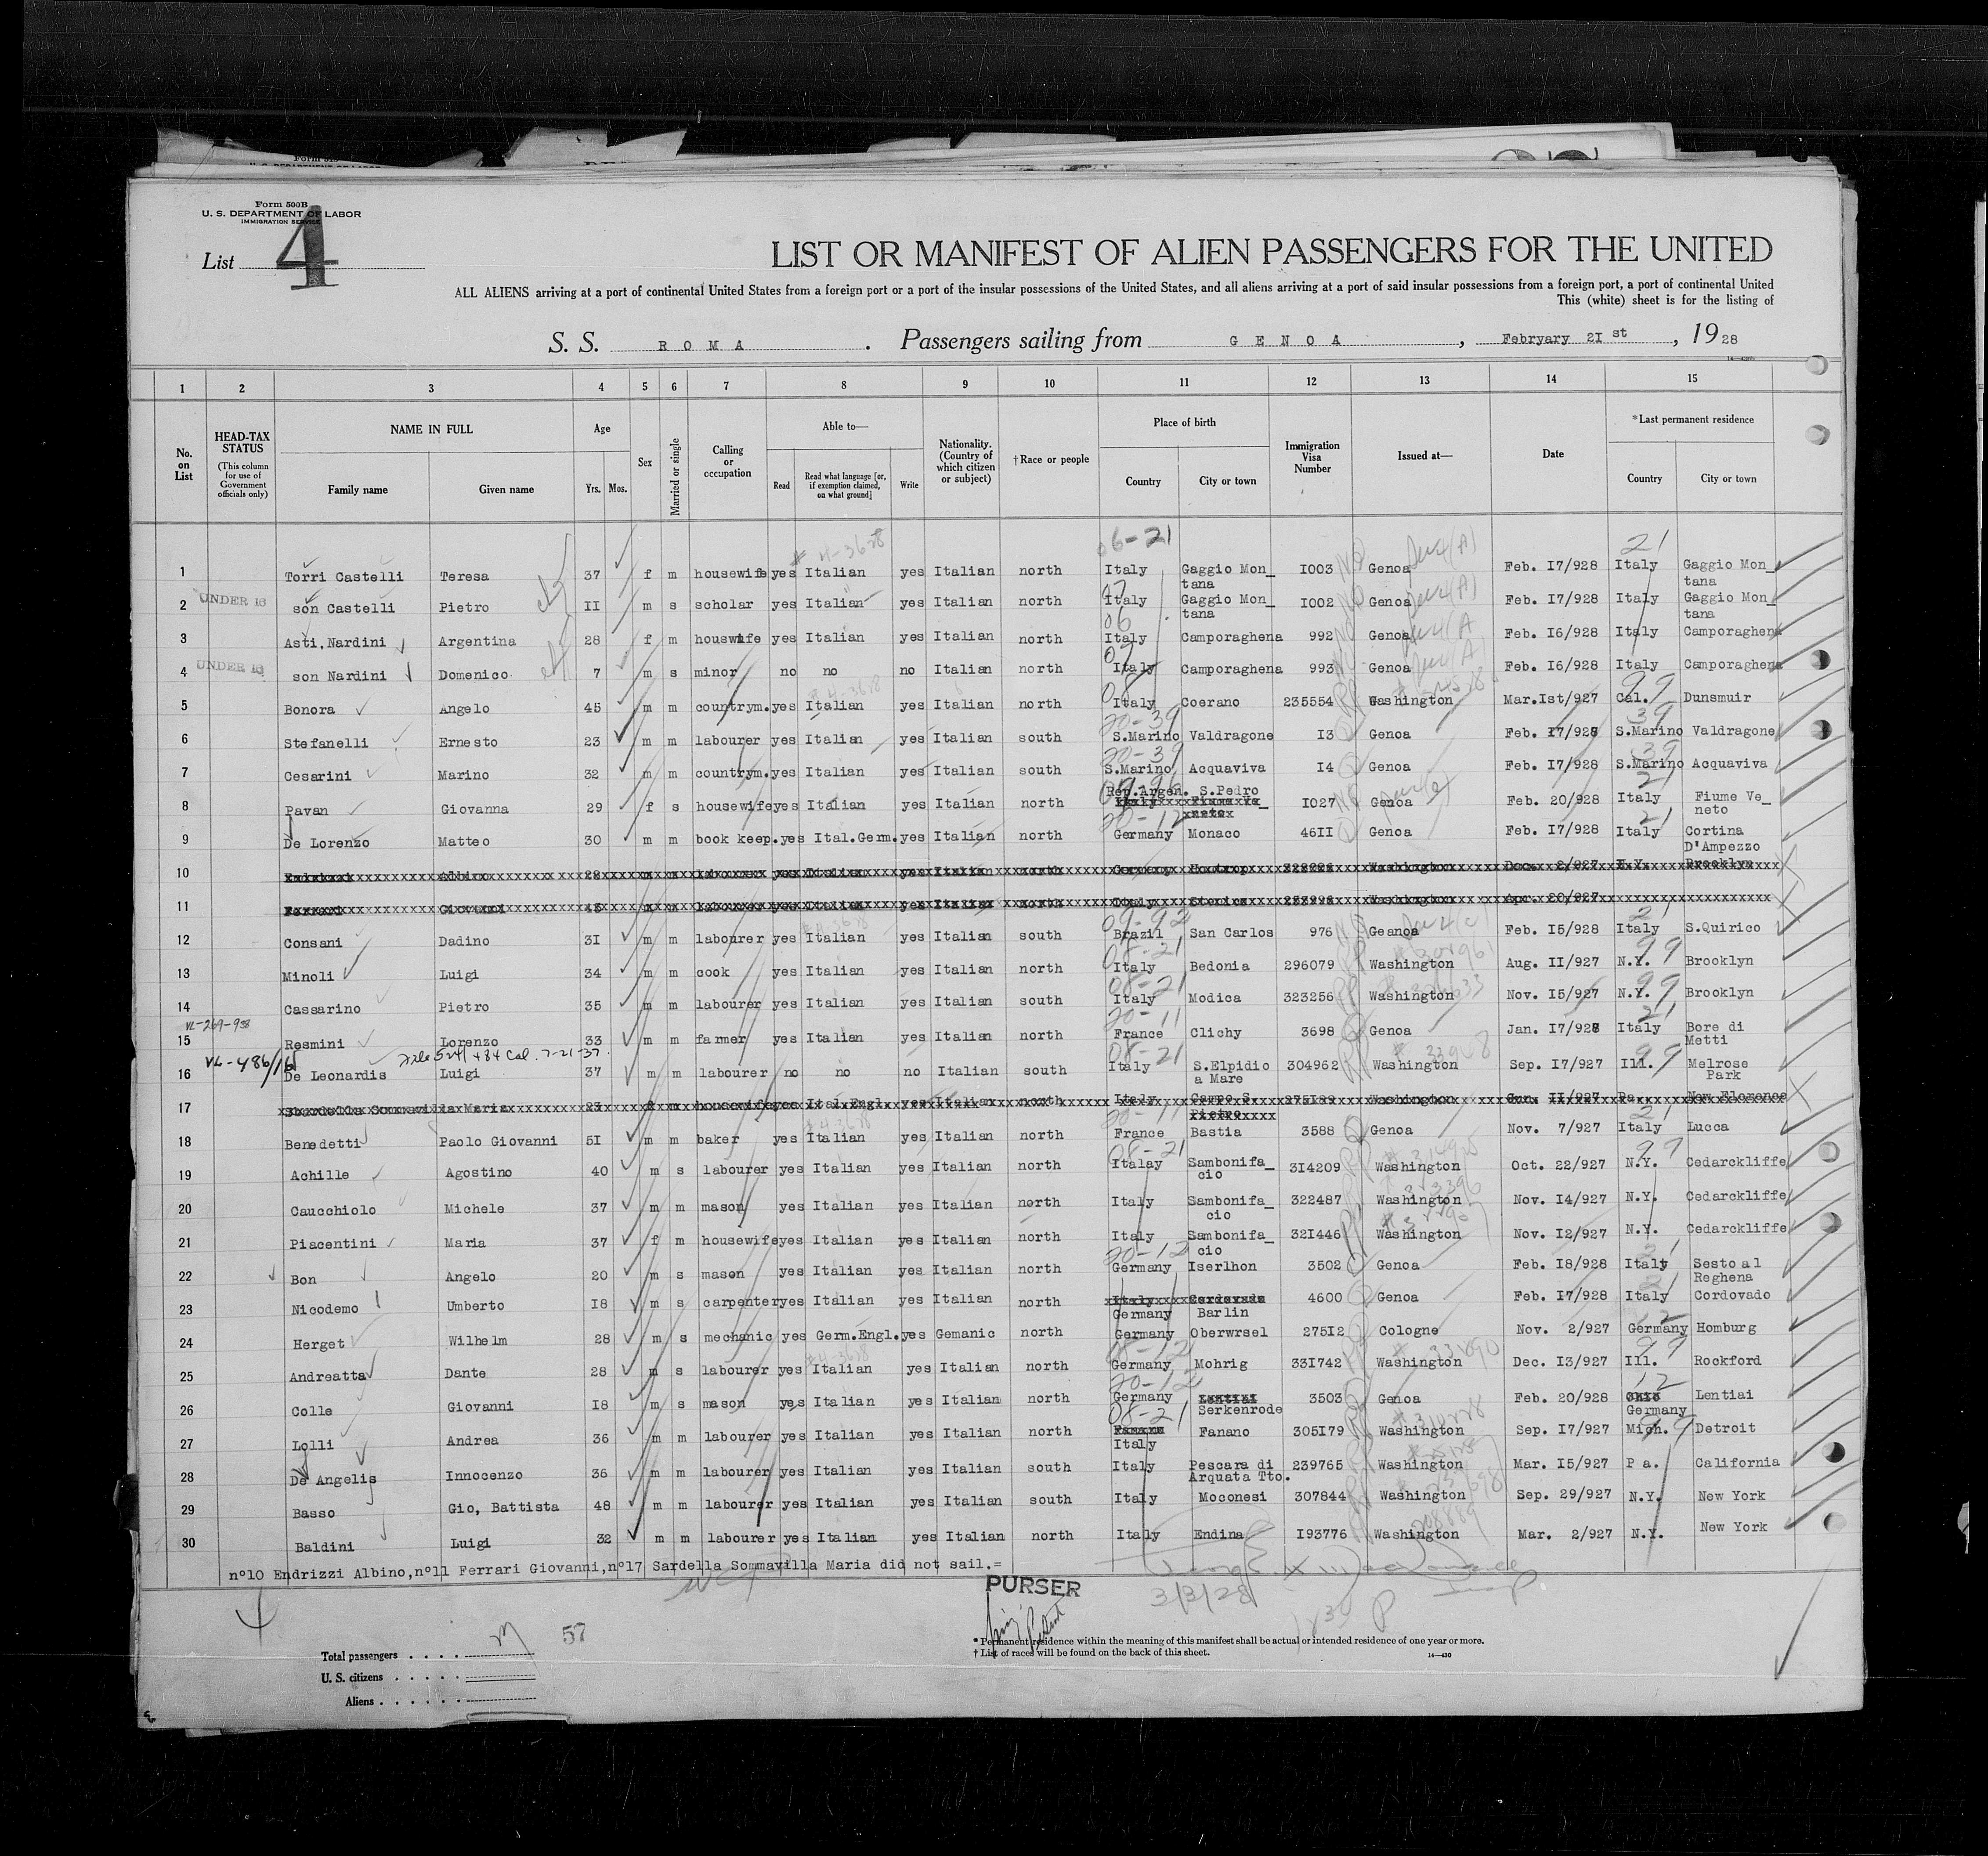 Form 500B
U. S. DEPARTMENT OF LABOR
IMMIGRATION SERVICE
List 4
LIST OR MANIFEST OF ALIEN PASSENGERS FOR THE UNITED
ALL ALIENS arriving at a port of continental United States from a foreign port or a port of the insular possessions of the United States, and all aliens arriving at a port of said insular possessions from a foreign port, a port of continental United
This (white) sheet is for the listing of
S. S. ROMA. Passengers sailing from GENOA, Febryary 2Ist, 1928
1 2 3 4 5 6 7 8 9 10 11 12 13 14 15
No. on List HEAD-TAX STATUS (This column for use of Government officials only) NAME IN FULL Family name Given name Age Yrs. Mos. Sex Married or single Calling or occupation Able to— Read Read what language [or, if exemption claimed, on what ground] Write Nationality. (Country of which citizen or subject) †Race or people Place of birth Country City or town Immigration Visa Number Issued at— Date *Last permanent residence Country City or town
1 Torri Castelli Teresa 37 f m housewife yes Italian yes Italian north Italy Gaggio Mon_ tana I003 Genoa Feb. I7/928 Italy Gaggio Mon_ tana
2 UNDER 16 son Castelli Pietro II m s scholar yes Italian yes Italian north Italy Gaggio Mon_ tana I002 Genoa Feb. I7/928 Italy Gaggio Mon_ tana
3 Asti,Nardini Argentina 28 f m houswife yes Italian yes Italian north Italy Camporaghena 992 Genoa Feb. I6/928 Italy Camporaghena
4 UNDER 16 son Nardini Domenico 7 m s minor no no no Italian north Italy Camporaghena 993 Genoa Feb. I6/928 Italy Camporaghena
5 Bonora Angelo 45 m m countrym. yes Italian yes Italian north Italy Coerano 235554 Washington Mar.Ist/927 Cal. Dunsmuir
6 Stefanelli Ernesto 23 m m labourer yes Italian yes Italian south S.Marino Valdragone I3 Genoa Feb. I7/928 S.Marino Valdragone
7 Cesarini Marino 32 m m countrym. yes Italian yes Italian south S.Marino Acquaviva I4 Genoa Feb. I7/928 S.Marino Acquaviva
8 Pavan Giovanna 29 f s housewife yes Italian yes Italian north Rep.Argen. S.Pedro I027 Genoa Feb. 20/928 Italy Fiume Ve_ neto
9 De Lorenzo Matteo 30 m m book keep. yes Ital.Germ. yes Italian north Germany Monaco 46II Genoa Feb. I7/928 Italy Cortina D'Ampezzo
10 Albino yes Italian yes Italian north Germany Washington Dec. 2/927 N.Y. Brooklyn
11 Ferrari Giovanni labourer yes Italian yes Italian north Italy Washington Apr. 20/927
12 Consani Dadino 3I m m labourer yes Italian yes Italian south Brazil San Carlos 976 Geanoa Feb. I5/928 Italy S.Quirico
13 Minoli Luigi 34 m m cook yes Italian yes Italian north Italy Bedonia 296079 Washington Aug. II/927 N.Y. Brooklyn
14 Cassarino Pietro 35 m m labourer yes Italian yes Italian south Italy Modica 323256 Washington Nov. I5/927 N.Y. Brooklyn
VL-269-938
15 Resmini Lorenzo 33 m m farmer yes Italian yes Italian north France Clichy 3698 Genoa Jan. I7/928 Italy Bore di Metti
VL-486/16
16 De Leonardis Luigi 37 m m labourer no no no Italian south Italy S.Elpidio a Mare 304962 Washington Sep. I7/927 Ill. Melrose Park
17 Sommavilla Maria f m housewife yes Ital.Engl. yes Italian north Italy Campo S. Pietro Washington II/927 Pa. New Florence
18 Benedetti Paolo Giovanni 5I m m baker yes Italian yes Italian north France Bastia 3588 Genoa Nov. 7/927 Italy Lucca
19 Achille Agostino 40 m s labourer yes Italian yes Italian north Italay Sambonifa_ cio 3I4209 Washington Oct. 22/927 N.Y. Cedarckliffe
20 Caucchiolo Michele 37 m m mason yes Italian yes Italian north Italy Sambonifa_ cio 322487 Washington Nov. I4/927 N.Y. Cedarckliffe
21 Piacentini Maria 37 f m housewife yes Italian yes Italian north Italy Sambonifa_ cio 32I446 Washington Nov. I2/927 N.Y. Cedarckliffe
22 Bon Angelo 20 m s mason yes Italian yes Italian north Germany Iserlhon 3502 Genoa Feb. I8/928 Italy Sesto al Reghena
23 Nicodemo Umberto I8 m s carpenter yes Italian yes Italian north Germany Barlin 4600 Genoa Feb. I7/928 Italy Cordovado
24 Herget Wilhelm 28 m s mechanic yes Germ.Engl. yes Gemanic north Germany Oberwrsel 275I2 Cologne Nov. 2/927 Germany Homburg
25 Andreatta Dante 28 m s labourer yes Italian yes Italian north Germany Mohrig 33I742 Washington Dec. I3/927 Ill. Rockford
26 Colle Giovanni I8 m s mason yes Italian yes Italian north Germany Lentiai Serkenrode 3503 Genoa Feb. 20/928 Ohio Germany Lentiai
27 Lolli Andrea 36 m m labourer yes Italian yes Italian north Fanano Italy Fanano 305I79 Washington Sep. I7/927 Mich. Detroit
28 De Angelis Innocenzo 36 m m labourer yes Italian yes Italian south Italy Pescara di Arquata Tto. 239765 Washington Mar. I5/927 Pa. California
29 Basso Gio, Battista 48 m m labourer yes Italian yes Italian south Italy Moconesi 307844 Washington Sep. 29/927 N.Y. New York
30 Baldini Luigi 32 m m labourer yes Italian yes Italian north Italy Endina I93776 Washington Mar. 2/927 N.Y. New York
nº10 Endrizzi Albino,nº11 Ferrari Giovanni,nº17 Sardella Sommavilla Maria did not sail.=
PURSER
3/3/28
57
* Permanent residence within the meaning of this manifest shall be actual or intended residence of one year or more.
† List of races will be found on the back of this sheet.
14—430
Total passengers
U. S. citizens
Aliens